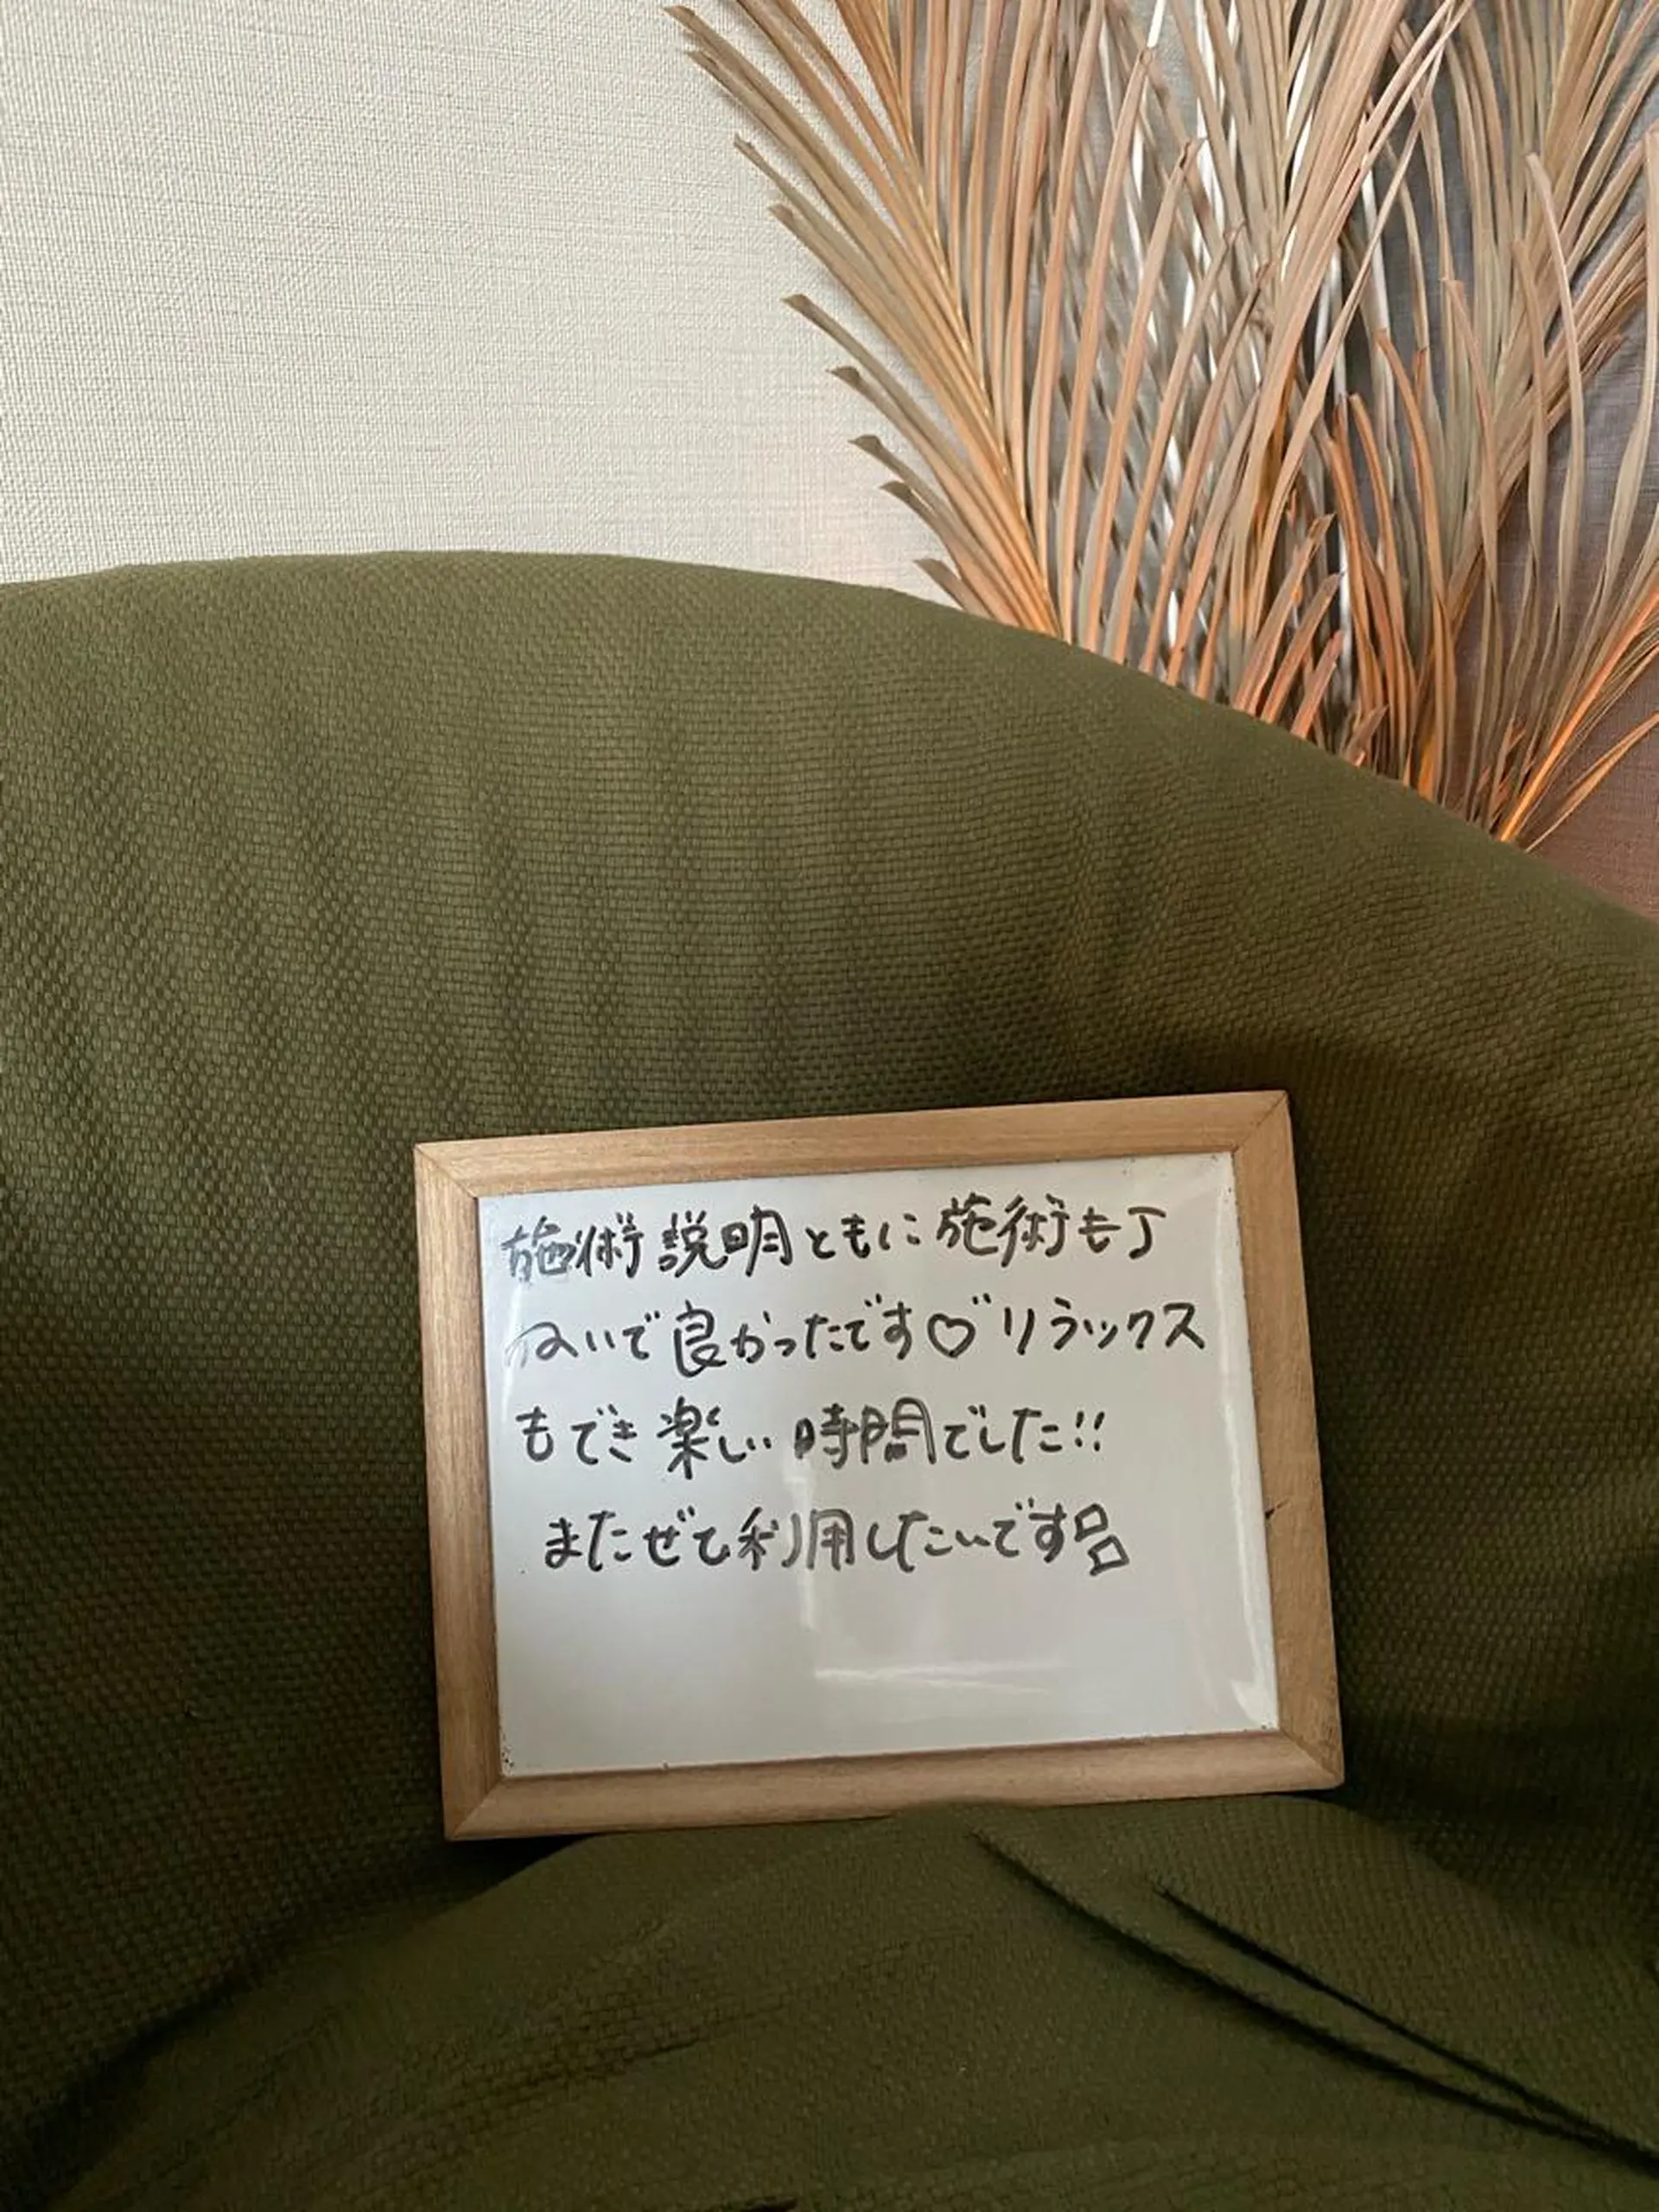 施術説明ともに施術も丁
ねいで良かったです♡゛リラックス
もでき楽しい時間でした!!
またぜひ利用したいです